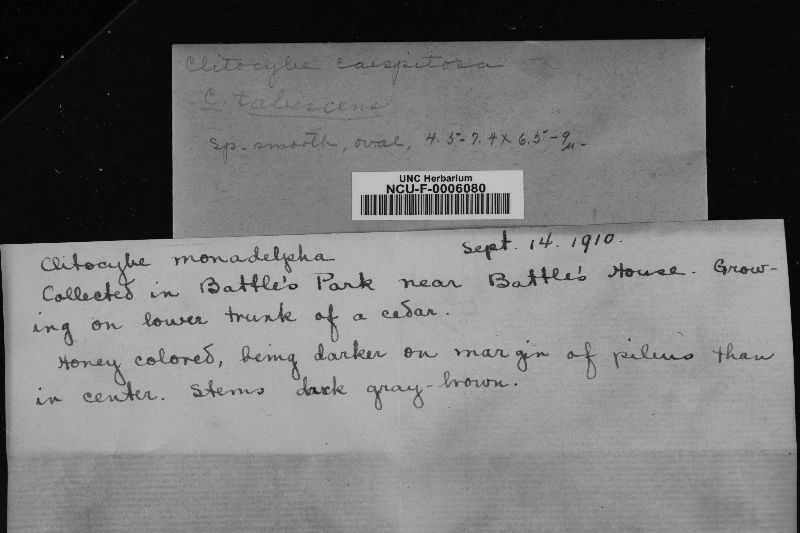 Clitocybe caespitosa
C. tabescens
sp. smooth, oval, 4.5-7.4 x 6.5-9µ-
UNC Herbarium
NCU-F-0006080
Clitocybe monadelpha Sept. 14. 1910.
Collected in Battle's Park near Battle's House. Grow-
ing on lower trunk of a cedar.
Honey colored, being darker on margin of pileus than
in center. Stems dark gray-brown.